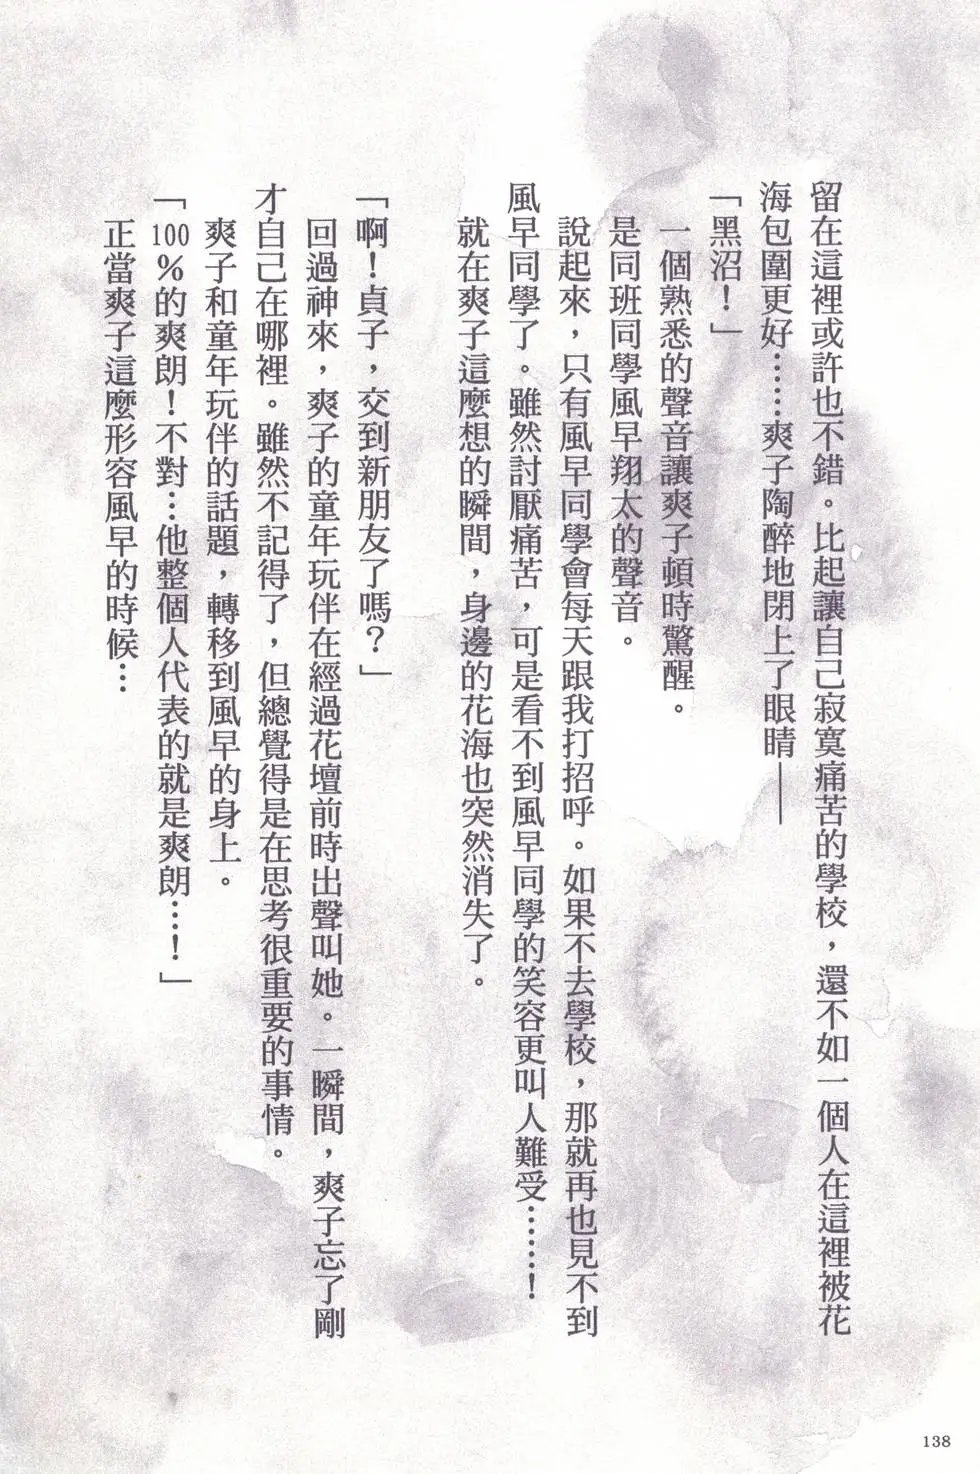 留在這裡或許也不錯。比起讓自己寂寞痛苦的學校，還不如一個人在這裡被花
海包圍更好……爽子陶醉地閉上了眼睛——
「黑沼！」
一個熟悉的聲音讓爽子頓時驚醒。
是同班同學風早翔太的聲音。
說起來，只有風早同學會每天跟我打招呼。如果不去學校，那就再也見不到
風早同學了。雖然討厭痛苦，可是看不到風早同學的笑容更叫人難受……！
就在爽子這麼想的瞬間，身邊的花海也突然消失了。
「啊！貞子，交到新朋友了嗎？」
回過神來，爽子的童年玩伴在經過花壇前時出聲叫她。一瞬間，爽子忘了剛
才自己在哪裡。雖然不記得了，但總覺得是在思考很重要的事情。
爽子和童年玩伴的話題，轉移到風早的身上。
「100％的爽朗！不對…他整個人代表的就是爽朗…！」
正當爽子這麼形容風早的時候…
138